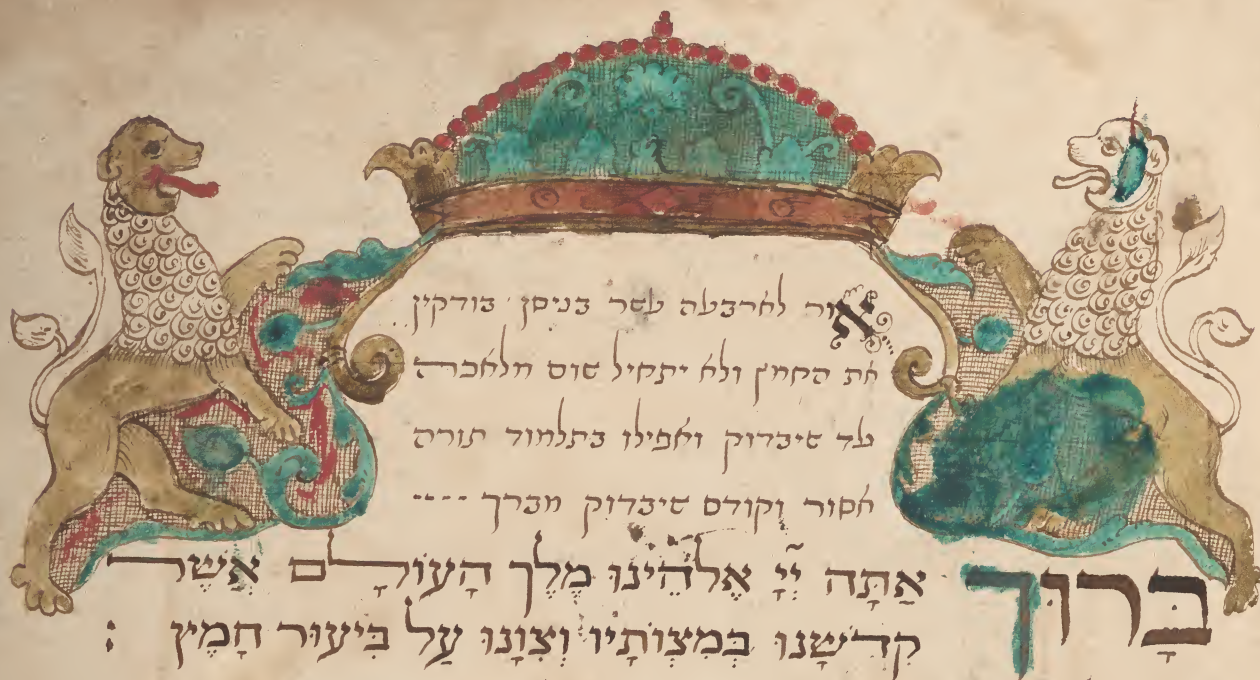 אור לארבעה עשר בניסן בודקין
את החמץ ולא יתחיל שום מלאכה
עד שיבדוק ואפילו בתלמוד תורה
אסור וקודם שיבדוק מברך ----
בָּרוּךְ אַתָּה יְיָ אֱלֹהֵינוּ מֶלֶךְ הָעוֹלָם אֲשֶׁר
קִדְּשָׁנוּ בְּמִצְוֹתָיו וְצִוָּנוּ עַל בִּיעוּר חָמֵץ :